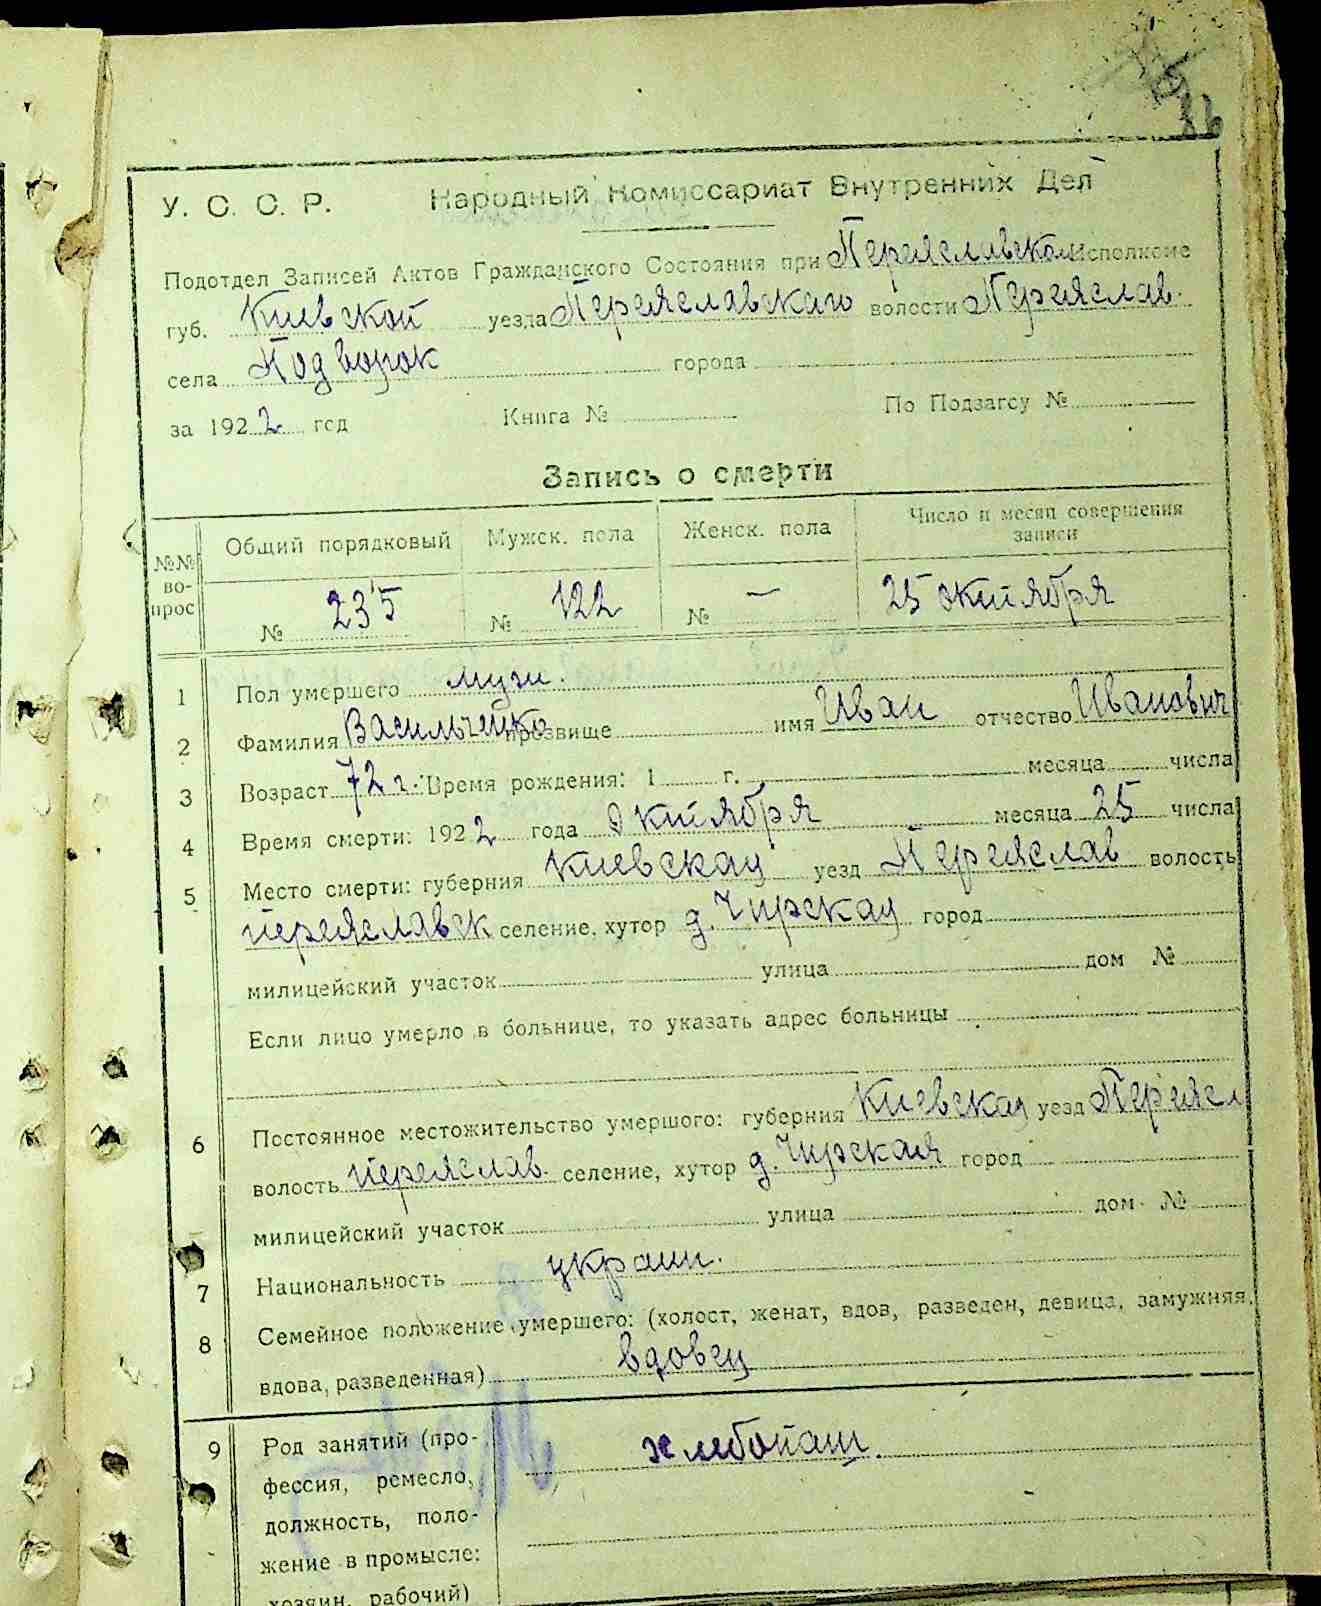 У. С. С. Р. Народный Комиссариат Внутренних Дел
Подотдел Записей Актов Гражданского Состояния при Переяславском исполкоме
губ. Киевской уезда Переяславскаго волости Переяслав.
села Подворок города
за 1922 год Книга № По Подзагсу №
Запись о смерти
№№ вопрос Общий порядковый Мужск. пола Женск. пола Число и месяц совершения записи
№ 235 № 122 № — 25 октября
1 Пол умершего муж.
2 Фамилия Васильченко прозвище имя Иван отчество Иванович
3 Возраст 72 г. Время рождения: 1 г. месяца числа
4 Время смерти: 1922 года октября месяца 25 числа
5 Место смерти: губерния Киевская уезд Переяслав волость
переяславск селение, хутор д. Чирская город
милицейский участок улица дом №
Если лицо умерло в больнице, то указать адрес больницы
6 Постоянное местожительство умершого: губерния Киевская уезд Переясл
волость переяслав. селение, хутор д. Чирская город
милицейский участок улица дом №
7 Национальность украин.
8 Семейное положение умершего: (холост, женат, вдов, разведен, девица, замужняя,
вдова, разведенная) вдовец
9 Род занятий (про- хлебопаш.
фессия, ремесло,
должность, поло-
жение в промысле:
хозяин, рабочий)